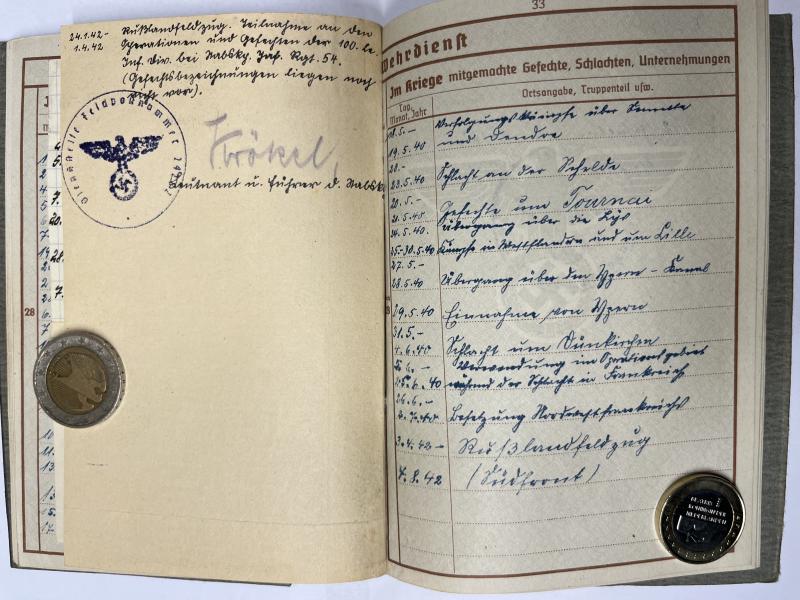 24.1.42 - Rußlandfeldzug. Teilnahme an den
1.4.42 Operationen und Gefechten der 100. le.
Inf. Div. bei Stabskp. Inf. Rgt. 54.
(Gefechtsbezeichnungen liegen noch
nicht vor).
Dienststelle Feldpostnummer
Leutnant u. Führer d. Stabskp.
28
5.
7.
20.
28.
7.
10
11.
13
13
15.
17.
33
Wehrdienst
Im Kriege mitgemachte Gefechte, Schlachten, Unternehmungen
Tag, Monat, Jahr
Ortsangabe, Truppenteil usw.
18.5. - Verfolgungskämpfe über Sennette
19.5.40 und Dendre
20. -
23.5.40 Schlacht an der Schelde
20.5. -
21.5.40 Gefechte um Tournai
24.5.40 Übergang über die Lys
25-30.5.40 Kämpfe in Westflandern und um Lille
27.5. -
28.5.40 Übergang über den Ypern - Kanal
29.5.40 Einnahme von Ypern
31.5. -
4.6.40 Schlacht um Dünkirchen
5.6. - Verwendung im Operationsgebiet
25.6.40 während der Schlacht in Frankreich
26.6. -
40 Besetzung Nordwestfrankreichs
3.4.42 - Rußlandfeldzug
7.8.42 (Südfront)
BEATRIX
KONINGIN DER
NEDERLANDEN